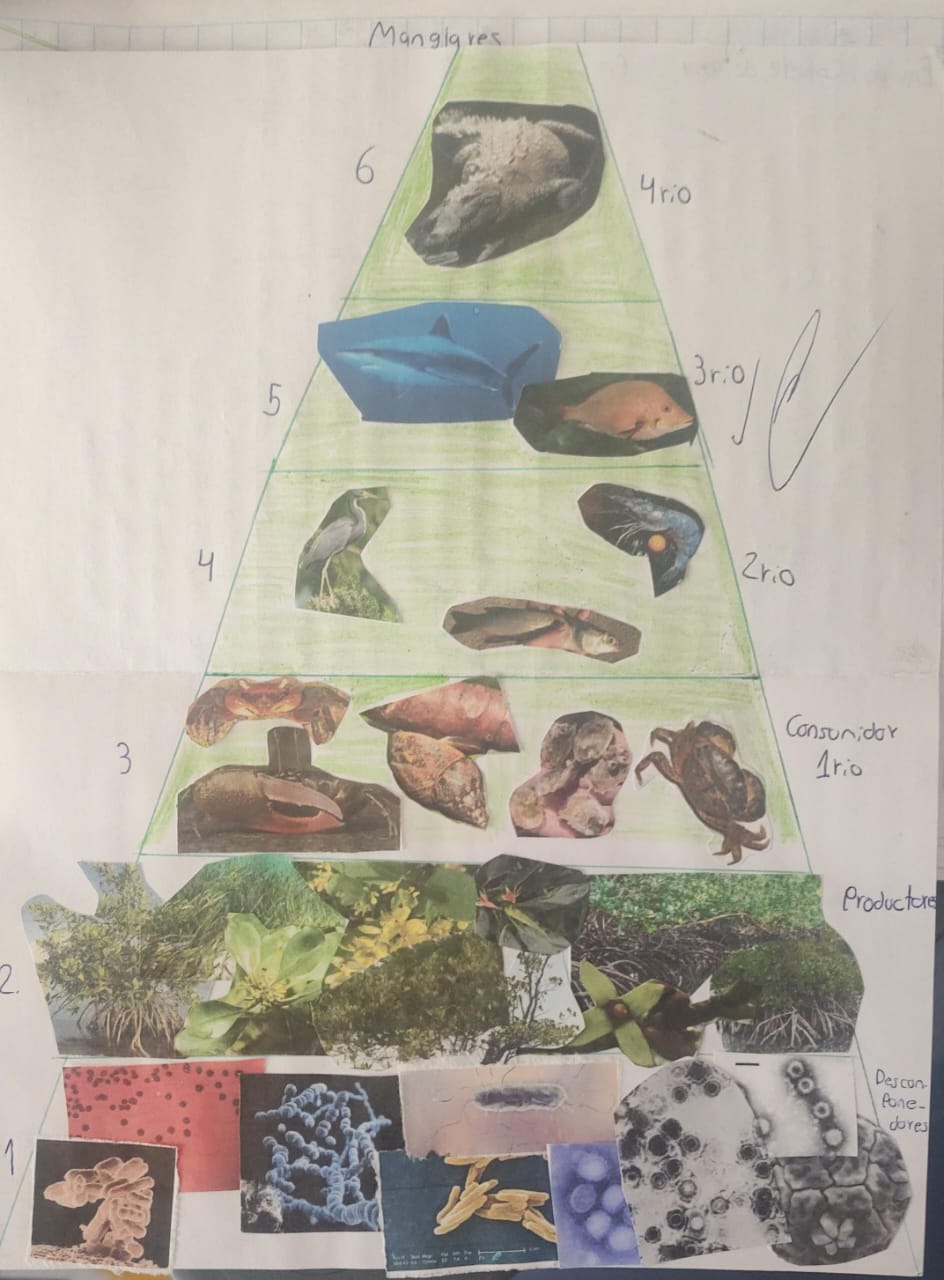 Manglares
6
4rio
5
3rio
4
2rio
3
Consumidor
1rio
Productore
2.
Descon-
Pone-
dores
1